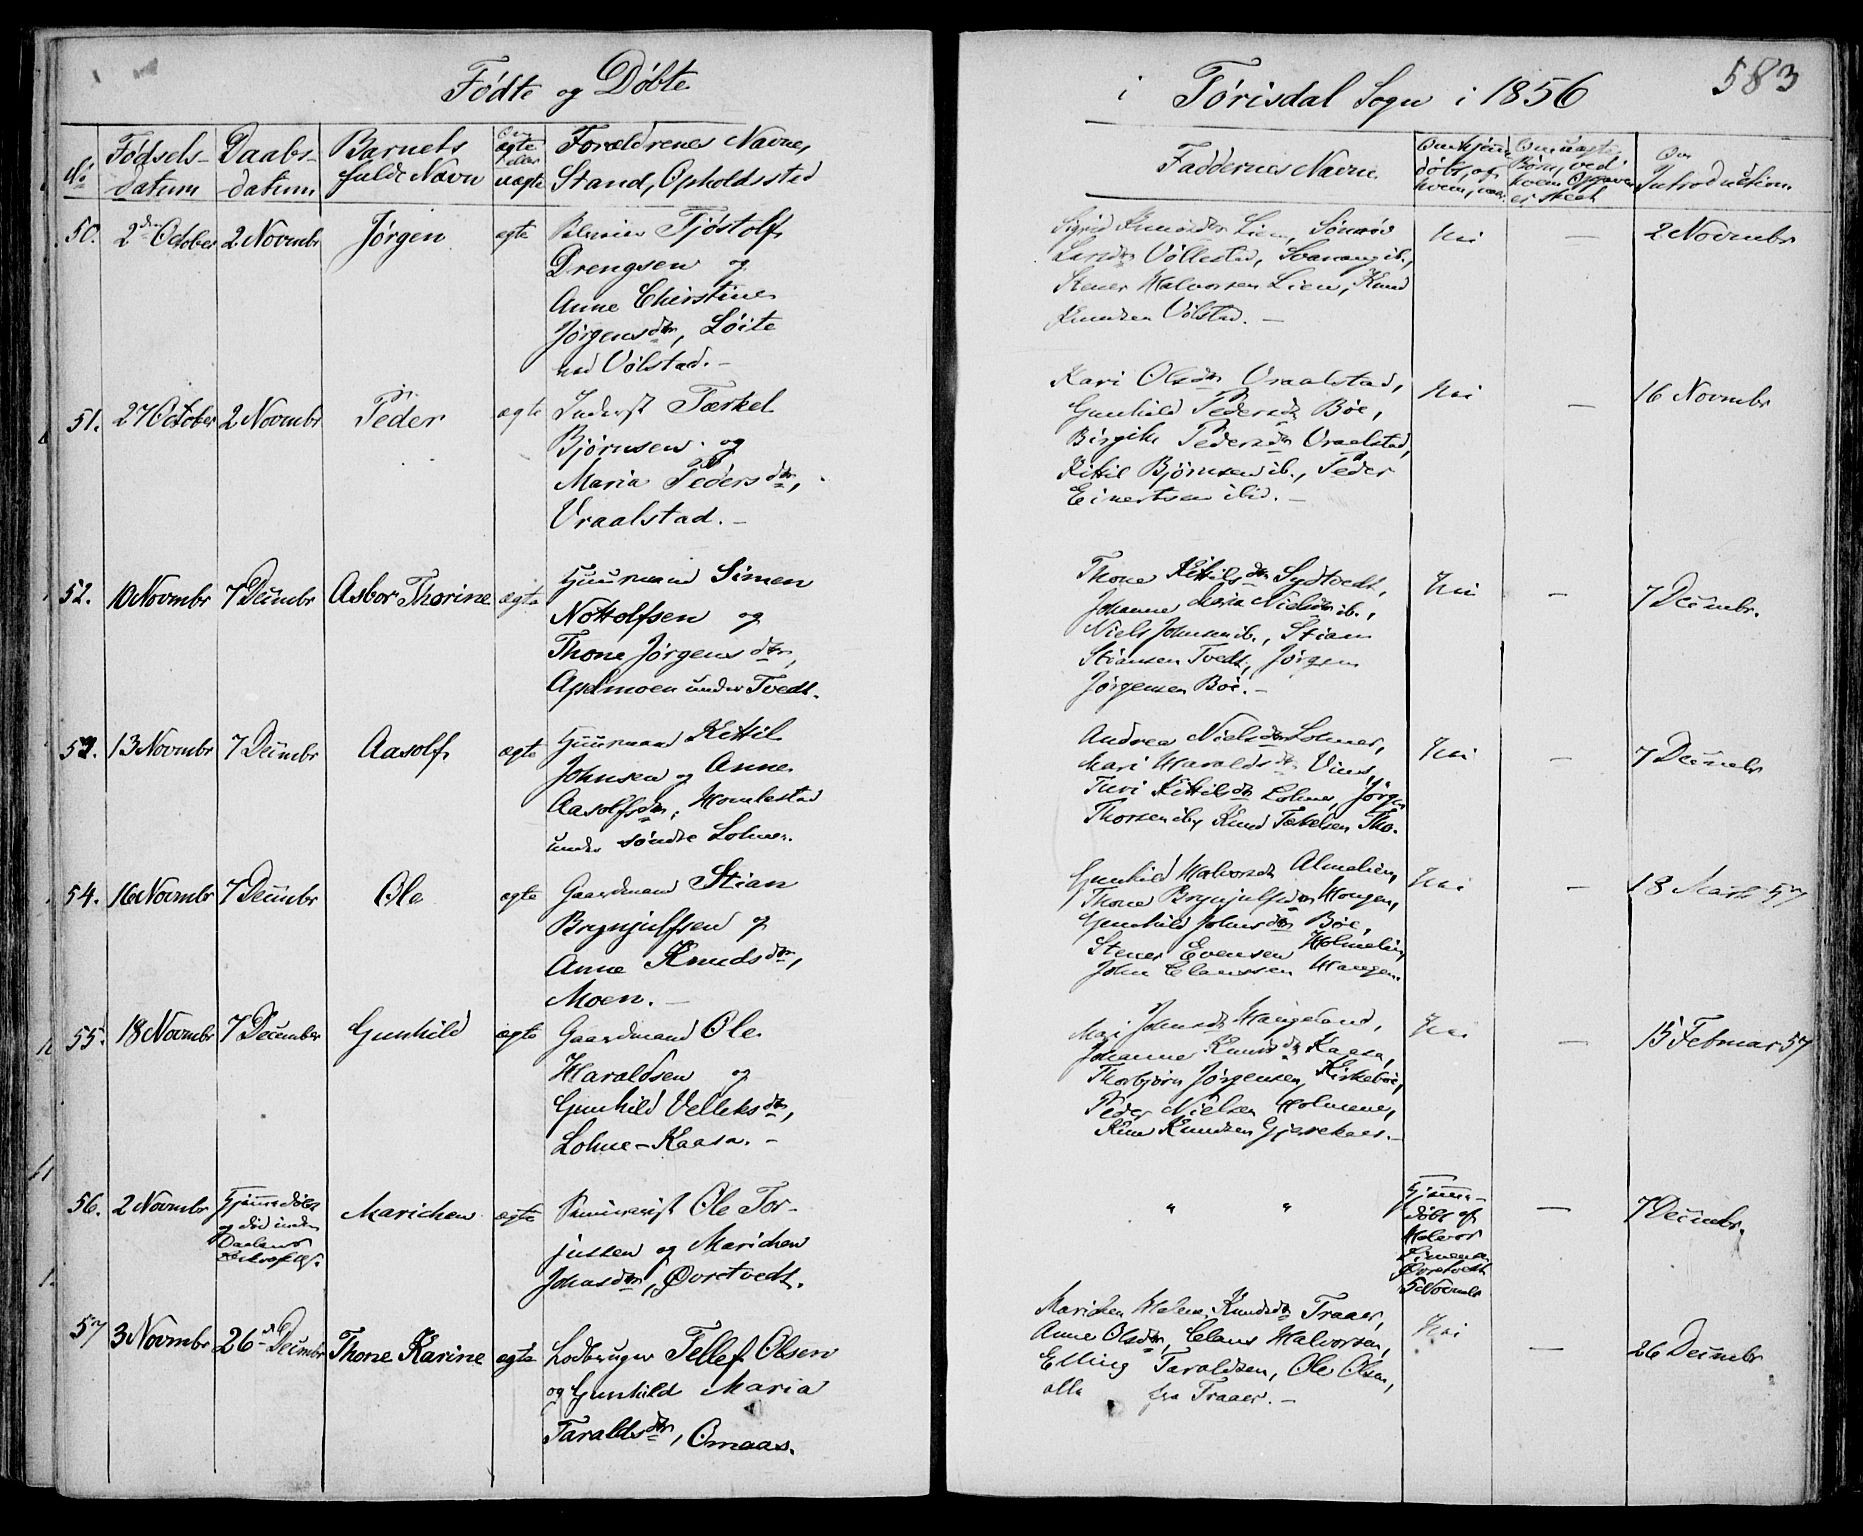 Fødte og Døbte
i Tørisdal Sogn i 1856
583
No
Fødsels-
datum
Daabs-
datum
Barnets
fulde Navn
Om
ægte
eller
uægte
Forældrenes Navne,
Stand, Opholdssted
Faddernes Navne.
døbt, af
hvem, naar
Børn, ved
hvem Opgaven
er skeet
Om
Introduction
50.
2den October
2 Novembr
Jørgen
ægte
Tjøstolf
Drengsen og
Anne Christine
Jørgensdtr, Løite
ved Völstad.-
Sigrid Knudsdtr Lien,
Larsdtr Völlestad, ib.,
Stener Halvorsen Lien, Knud
Knudsen Völstad. -
Nei
-
2 Novembr
51.
27 October
2 Novembr
Peder
ægte
Inderst Tærkel
Bjørnsen og
Maria Pedersdtr,
Vraalstad. -
Kari Olsdtr Vraalstad,
Gunhild Pedersdtr Bøe,
Birgithe Pedersdtr Vraalstad,
Kittil Bjørnsen ib., Peder
Einertsen ibid. -
Nei
-
16 Novembr
52.
10 Novembr
7 Decembr
Asbor Thorine
ægte
Huusmand Simen
Nottolfsen og
Thone Jørgensdtr,
under Tvedt.
Thone Kittilsdtr Sydtvedt,
Johanne Maria Nielsdtr ib.,
Niels Johnsen ib., Stian
Stiansen Tvedt, Jørgen
Jørgensen Bøe. -
Nei
-
7 Decembr.
53.
13 Novembr
7 Decembr
Aasolf
ægte
Huusmand Kittil
Johnsen og Anne
Aasolfsdtr, Homlestad
under søndre Lohne.
Andrea Nielsdtr Lohne,
Mari Haraldsdtr
Turi Kittilsdtr Lohne, Jørgen
Thorsen ib, Knud Tho.
Nei
-
7 Decembr
54.
16 Novembr
7 Decembr
Ole
ægte
Gaardmand Stian
Brynjulfsen og
Anne Knudsdtr,
Moen. -
Gunhild Halvorsdt Almelien,
Thone Brynjulfsdtr Haugen,
Gunhild Johnsdtr Bøe,
Stener Evensen Holmelien,
John Clausen Haugen.
Nei
-
18 Marts 57
55.
18 Novembr
7 December
Gunhild
ægte
Gaardmand Ole
Haraldsen og
Gunhild Velleksdtr,
Lohne-Kaasa. -
Mari Johnsdt Haugeland,
Johanne Knudsdtr Kaasa,
Thorbjørn Jørgensen Kirkebøe,
Peder Nielsen Holmene,
Knudsen
Nei
-
15 Februar 57
56.
2 Novembr
Hjemmedøbt
og død inden
Marichen
ægte
Ole Tor-
jussen og Marichen
Johnsdtr, Øvretvedt.
" "
Hjemme-
døbt af
Halvor
Simensen
Øvretvedt
5 Novembr
-
7 Decembr.
57
3 Novembr
26de Decembr
Thone Karine
ægte
Lodbruger Tellef Olsen
og Gunhild Maria
Taraldsdtr, Omaas.
Marichen Helene Knudsdtr Traaer,
Anne Olsdtr, Claus Halvorsen,
Elling Taraldsen, Ole Olsen,
alle fra Traaer. -
Nei
-
26 Decembr